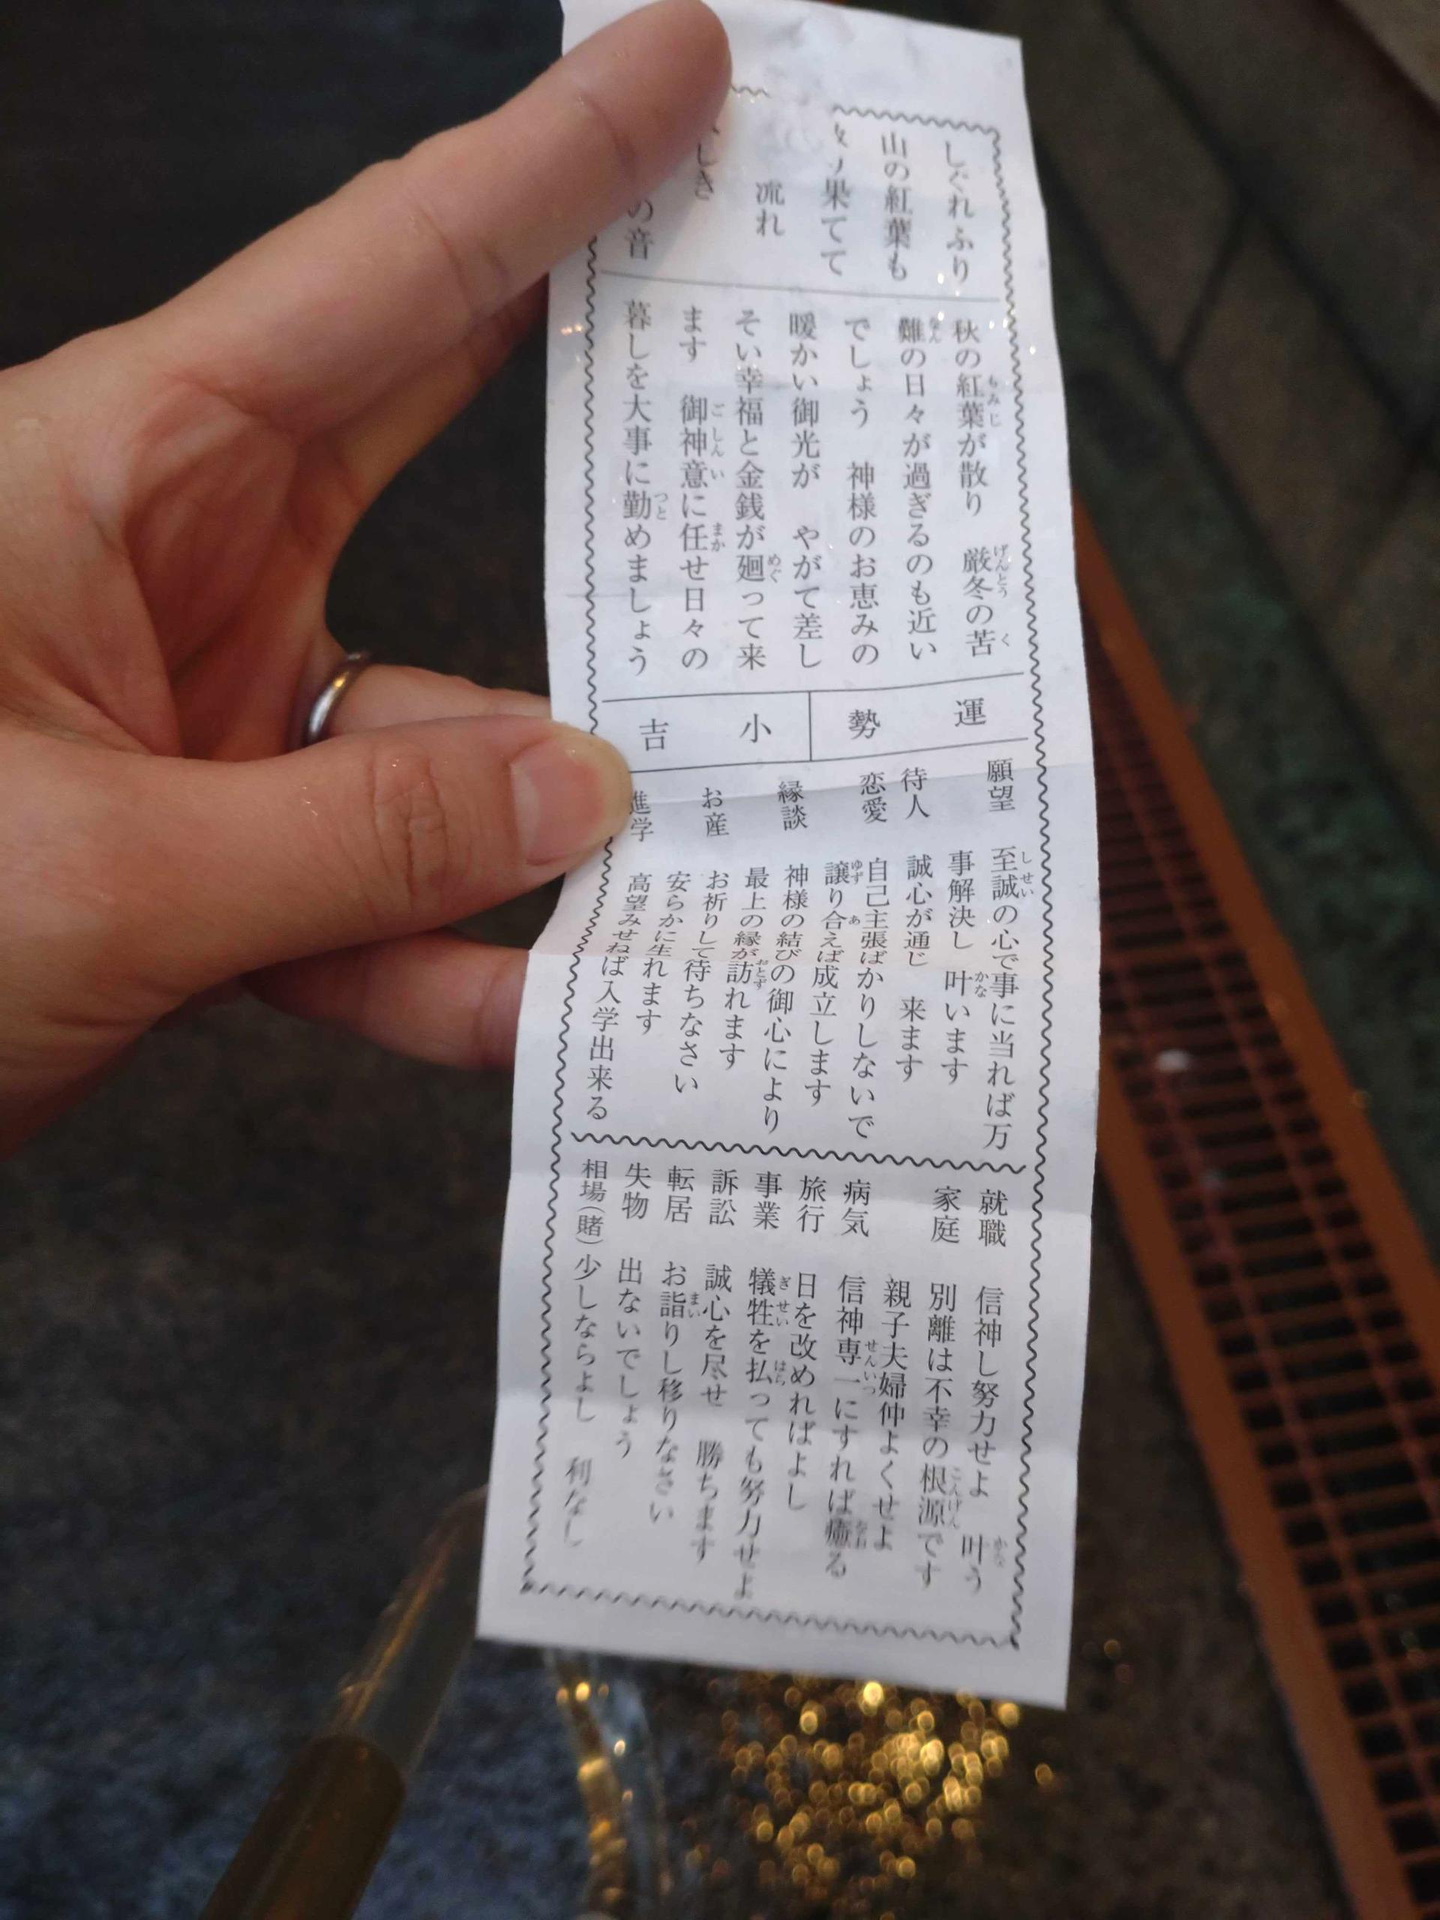 しぐれふり
山の紅葉も
果てて
流れ
しき
の音
秋の紅葉が散り　厳冬の苦
難の日々が過ぎるのも近い
でしょう　神様のお恵みの
暖かい御光が　やがて差し
そい幸福と金銭が廻って来
ます　御神意に任せ日々の
暮しを大事に勤めましょう
運勢
小吉
願望　至誠の心で事に当れば万
事解決し　叶います
待人　誠心が通じ　来ます
恋愛　自己主張ばかりしないで
譲り合えば成立します
縁談　神様の結びの御心により
最上の縁が訪れます
お産　お祈りして待ちなさい
安らかに生れます
進学　高望みせねば入学出来る
就職　信神し努力せよ　叶う
家庭　別離は不幸の根源です
親子夫婦仲よくせよ
病気　信神専一にすれば癒る
旅行　日を改めればよし
事業　犠牲を払っても努力せよ
訴訟　誠心を尽せ　勝ちます
転居　お詣りし移りなさい
失物　出ないでしょう
相場（賭）少しならよし　利なし